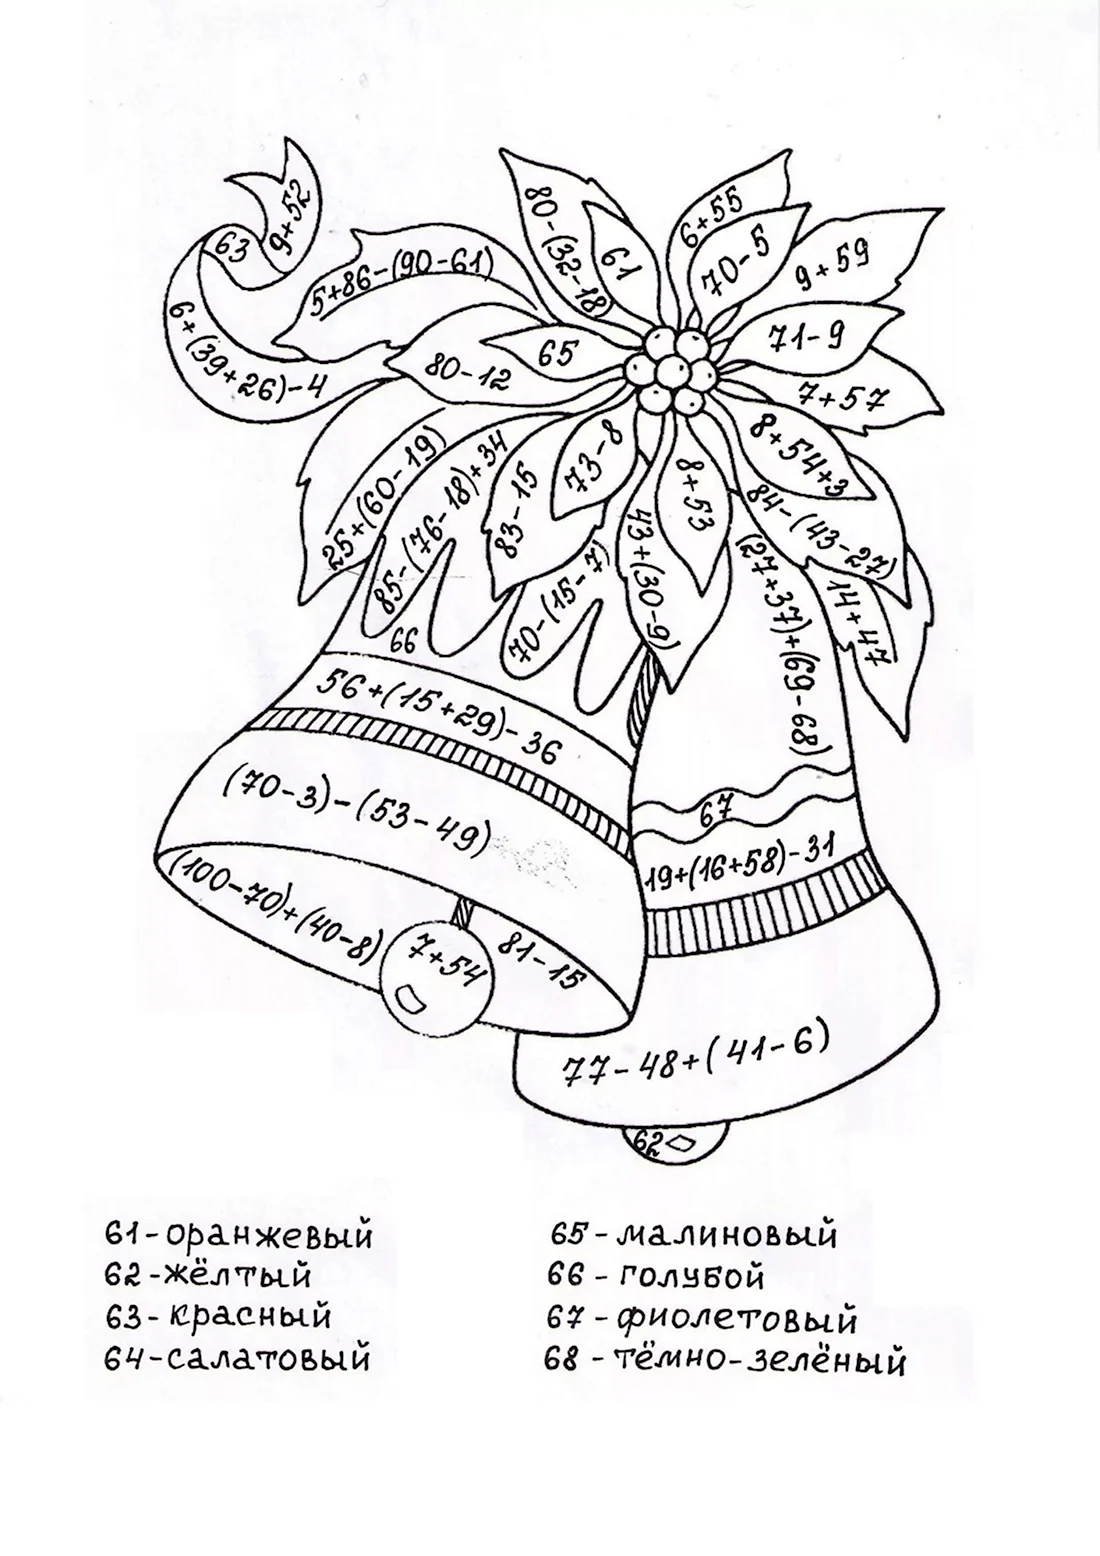 9+52
63
6+(39+26)-4
5+86-(90-61)
80-(32-18)
61
6+55
70-5
9+59
71-9
7+57
80-12
65
8+54+3
73-8
8+53
84-(43-27)
14+47
25+(60-19)
85-(76-18)+34
83-15
70-(15-7)
43+(30-9)
(27+37)+(69-68)
66
56+(15+29)-36
(70-3)-(53-49)
67
19+(16+58)-31
(100-70)+(40-8)
7+54
81-15
77-48+(41-6)
62
61-оранжевый
62-жёлтый
63-красный
64-салатовый
65-малиновый
66-голубой
67-фиолетовый
68-тёмно-зелёный